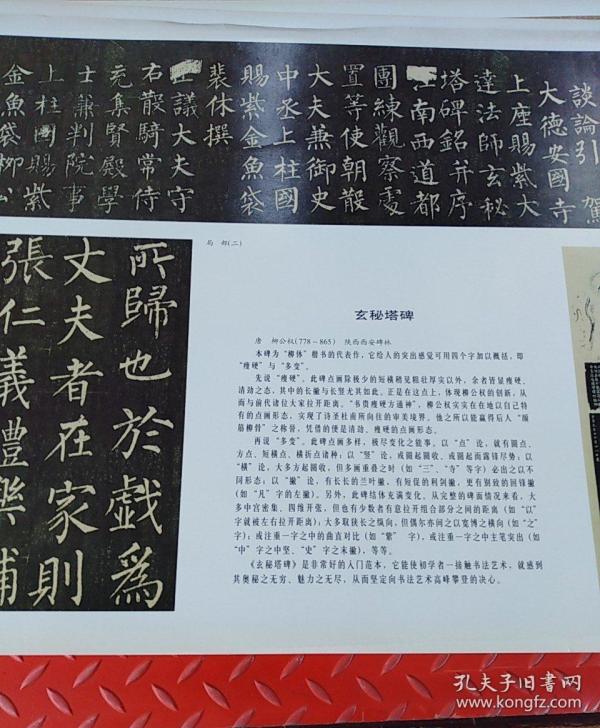 談論引 駕
大德安國寺
上座賜紫大
達法師玄秘
塔碑銘并序
江南西道都
團練觀察處
置等使朝散
大夫兼御史
中丞上柱國
賜紫金魚袋
裴休撰
正議大夫守
右散騎常侍
充集賢殿學
士兼判院事
上柱國賜紫
金魚袋柳公
局 部(二)
所歸也於戲為
丈夫者在家則
張仁義禮樂輔
玄秘塔碑
唐 柳公权(778～865) 陕西西安碑林
本碑为“柳体”楷书的代表作，它给人的突出感觉可用四个字加以概括，即
“瘦硬”与“多变”。
先说“瘦硬”。此碑点画除极少的短横稍见粗壮厚实以外，余者皆显瘦硬、
清劲之态，其中的长撇与长竖尤其如此。正是在这点上，体现柳公权的创新，从
而与前代诸位大家拉开距离。“书贵瘦硬方通神”，柳公权实实在在地以自己特
有的点画形态，实现了诗圣杜甫所向往的审美境界。他之所以能赢得后人“颜
筋柳骨”之称誉，凭借的便是清劲、瘦硬的点画形态。
再说“多变”。此碑点画多样，极尽变化之能事。以“点”论，就有圆点、
方点、短横点、横折点诸种；以“竖”论，或圆起圆收、或圆起而露锋尽势；以
“横”论，大多方起圆收，但多画重叠之时（如“三”、“寺”等字）必出之以不
同形态；以“撇”论，有长长的兰叶撇，有短促的利剑撇，更有别致的回锋撇
（如“凡”字的左撇）。另外，此碑结体充满变化，从完整的碑面情况来看，大
多中宫密集、四维开张，但也有少数者有意拉开组合部分之间的距离（如“以”
字就被左右拉开距离）；大多取狭长之纵向，但偶尔亦间之以宽博之横向（如“之”
字）；或注重一字之中的曲直对比（如“紫” 字），或注重一字之中主笔突出（如
“中”字之中竖、“史”字之末撇），等等。
《玄秘塔碑》是非常好的入门范本，它能使初学者一接触书法艺术，就感到
其奥秘之无穷、魅力之无尽，从而坚定向书法艺术高峰攀登的决心。
孔夫子旧书网
kongfz.com